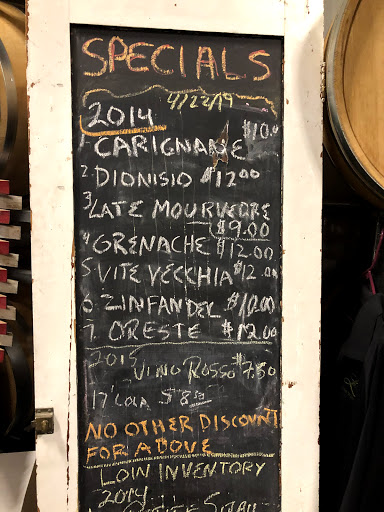 SPECIALS
4/22/19
2014
1. CARIGNANE $10.00
2. DIONISIO $12.00
3. LATE MOURVEDRE
$9.00
4. GRENACHE $12.00
5. VITE VECCHIA $12.00
6. ZINFANDEL $10.00
7. ORESTE $12.00
2015 VINO ROSSO $7.50
17' $8.50
NO OTHER DISCOUNT
FOR ABOVE
LOIN INVENTORY
2014